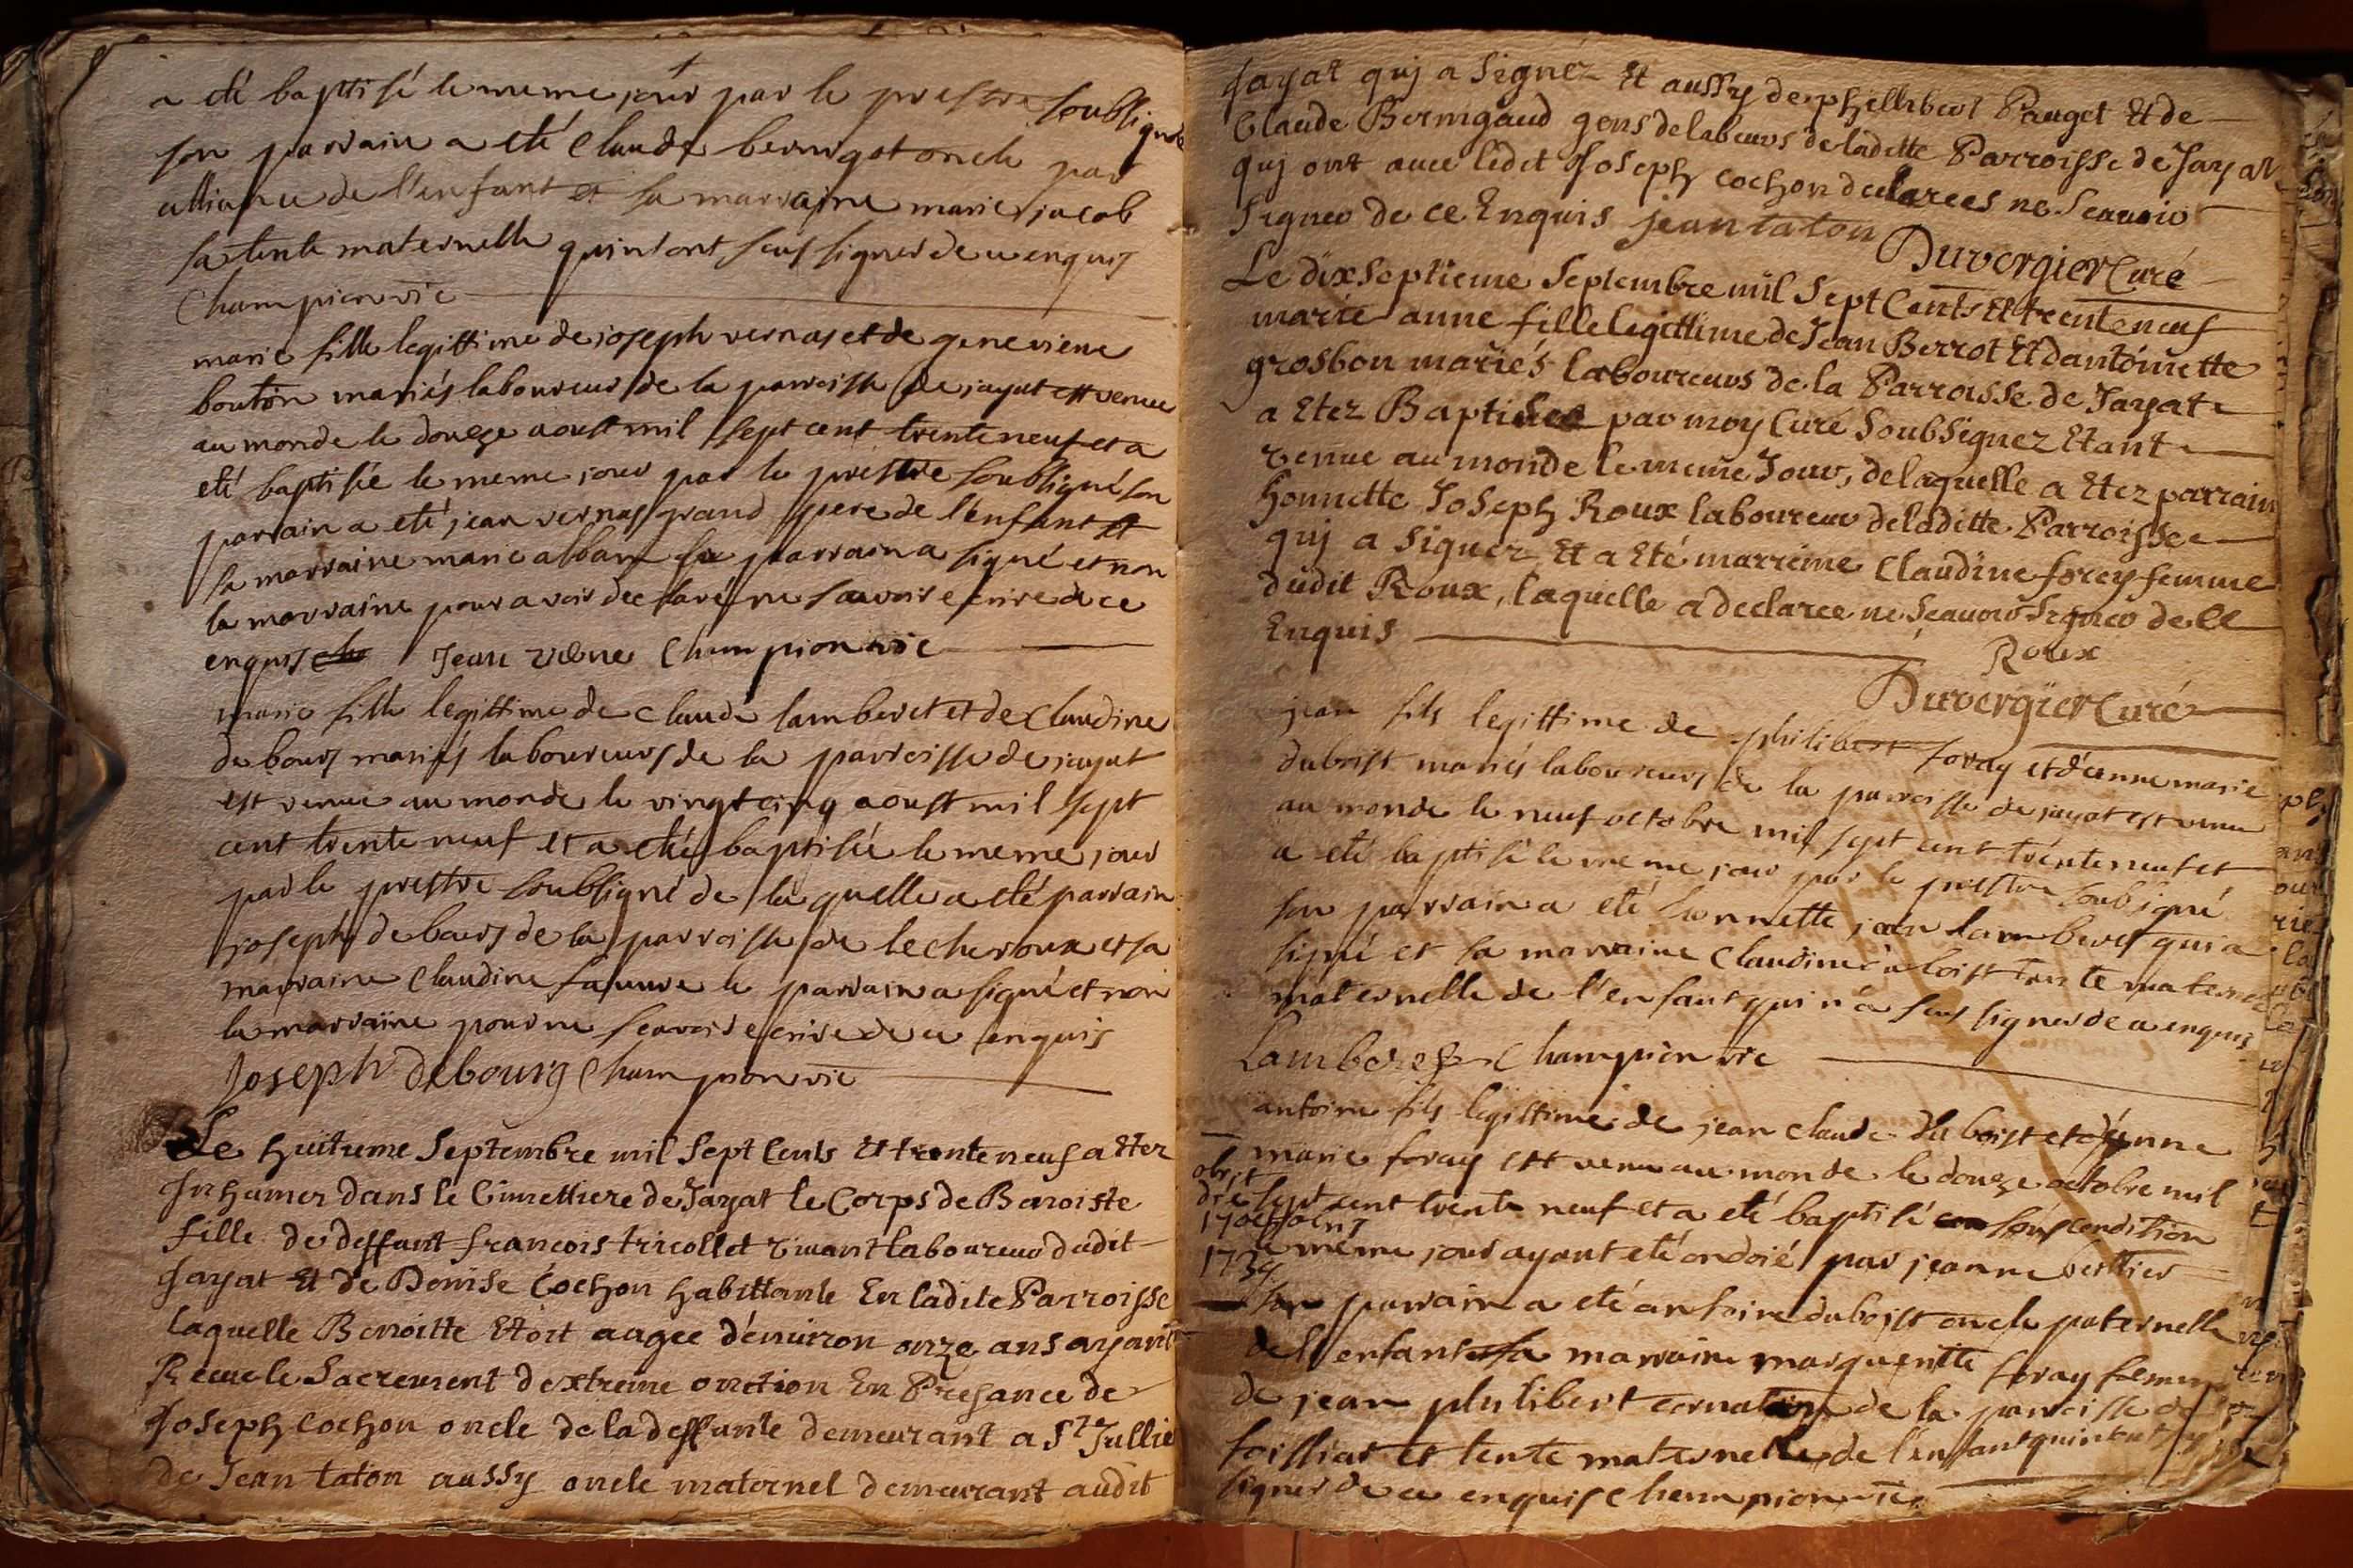 a eté baptisé le meme jour par le prestre soubsigné
son parrain a eté Claude bernigot oncle par
alliance de l'enfant et sa marraine marie jacob
sa tente maternelle qui n'ont sceus signer de ce enquis
Champion vic
marie fille legittime de joseph vernas et de genevieve
bouton mariés laboureurs de la parroisse de jayat est venue
au monde le douze aoust mil sept cent trente neuf et a
eté baptisée le meme jour par le prestre soubsigné son
parrain a eté jean vernas grand pere de l'enfant et
sa marraine marie abbam le parrain a signé et non
la marraine pour avoir declaré ne savoir ecrire de ce
enquis Jean verne Champion vic
marie fille legittime de claude lamberet et de Claudine
de bours mariés laboureurs de la parroisse de jayat
est venue au monde le vingt cinq aoust mil sept
cent trente neuf et a eté baptisée le meme jour
par le prestre soubsigné de laquelle a eté parrain
joseph de bours de la parroisse de lecheroux et sa
marraine Claudine le parrain a signé et non
la marraine pour ne scavoir ecrire de ce enquis
Joseph debourg Champion vic
Le huitieme Septembre mil Sept Cents Et trente neuf a Etez
Inhumer dans le Cimettiere de Jayat le Corps de Benoiste
fille de deffunt francois tricollet vivant laboureur dudit
Jayat Et de Denise Cochon habittante En ladite Parroisse
laquelle Benoitte Etoit augee d'environ onze ans ayant
Receu le Sacrement d'extreme onction En Presance de
Joseph Cochon oncle de la deffunte demeurant a St Jullie
de Jean taton aussy oncle maternel demeurant audit
Jayat quj a Signez Et aussy de phillibert Pauget Et de
Claude Bernigaud gens de labeurs de ladette Parroisse de Jayat
quj ont avec ledit Joseph Cochon declarees ne Scavoir
Signer de ce Enquis jean taton
Duvergier Curé
Le dix Septieme Septembre mil Sept Cents Et trente neuf
marie anne fille legittime de Jean Berrot Et dantoinette
grosbon mariés laboureurs de la Parroisse de Jayat
a Etez Baptisee par moy Curé Soubsignez Etant
venue au monde le meme Jour, de laquelle a Etez parrain
honnette Joseph Roux laboureur de laditte Parroisse
quj a Signer Et a Eté marreine Claudine forey femme
dudit Roux, laquelle a declaree ne Scavoir Signer de Ce
Enquis
Roux
Duvergier Curé
jean fils legittime de philibert foray et d'enne marie
duboist mariés laboureurs de la parroisse de jayat est venu
au monde le neuf octobre mil sept cent trente neuf et
a eté baptisé le meme jour par le prestre soubsigné
son parrain a eté honnette jean lamberet qui a
signé et sa marraine Claudine tente
maternelle de l'enfant qui n'a sceu signer de ce enquis
Lamberet Champion vic
antoine fils legittime de jean claude du boist et d'enne
marie foray est venu au monde le douze octobre mil
sept cent trente neuf et a eté baptisé sous condition
le meme jour ayant eté ondoié par jeanne
obiit
1739
son parrain a eté antoine duboist oncle paternelle
de l'enfant sa marraine marguerite foray femme
de jean philibert de la parroisse de
foissiat et tente maternelle de l'enfant qui n'ont
signer de ce enquis Champion vic